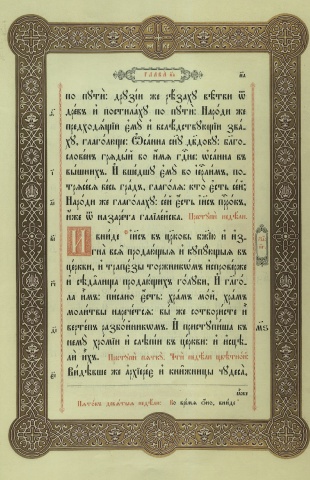 ГЛАВА к҃а
по пꙋтѝ: дрꙋзі́и же рѣ́захꙋ вѣ̑тви ѿ
дре́въ и҆ постила́хꙋ по пꙋтѝ: Наро́ди же
предходѧ́щїи є҆мꙋ̀ и҆ вслѣ́дствꙋющїи зва́-
хꙋ, глаго́люще: Ѡ҆са́нна сы́нꙋ дв҃довꙋ: бл҃го-
слове́нъ грѧды́й во и҆́мѧ гд҇не: ѡ҆са́нна въ
вы́шнихъ. И҆ вше́дшꙋ є҆мꙋ̀ во і҆ерⷭ҇ли́мъ, по-
трѧсе́сѧ ве́сь гра́дъ, глаго́лѧ: кто̀ є҆́сть се́й;
Наро́ди же глаго́лахꙋ: се́й є҆́сть і҆и҃съ пр҇ро́къ,
и҆́же ѿ назаре́та галїле́йска. Престꙋпѝ недѣ́ли.
И҆ вни́де і҆и҃съ въ цр҃ковь бж҃їю и҆ и҆з-
гна̀ всѧ̑ продаю́щыѧ и҆ кꙋпꙋ́ющыѧ въ
це́ркви, и҆ трапє́зы торжникѡ́мъ и҆спрове́рже
и҆ сѣда̑лища продаю́щихъ гол̑ꙋби, И҆ гл҃го-
ла и҆̀мъ: пи́сано є҆́сть: хра́мъ мо́й, хра́мъ
моли́твы нарече́тсѧ: вы́ же сотвори́сте и҆̀
верте́пъ разбо́йникѡмъ. И҆ пристꙋпи́ша къ
немꙋ̀ хро́мїи и҆ слѣпі́и въ це́ркви: и҆ и҆сцѣ-
лѝ и҆̀хъ. Престꙋпѝ пѧткꙋ̀. Чтѝ недѣ́ли цвѣ́тныѧ:
Ви́дѣвше же а҆рхїере́є и҆ кни́жницы чꙋдеса̀,
ꙗ҆̀же
Пѧто́къ десѧ́тыѧ недѣ́ли: Во вре́мѧ ѻ҆́но, вни́де